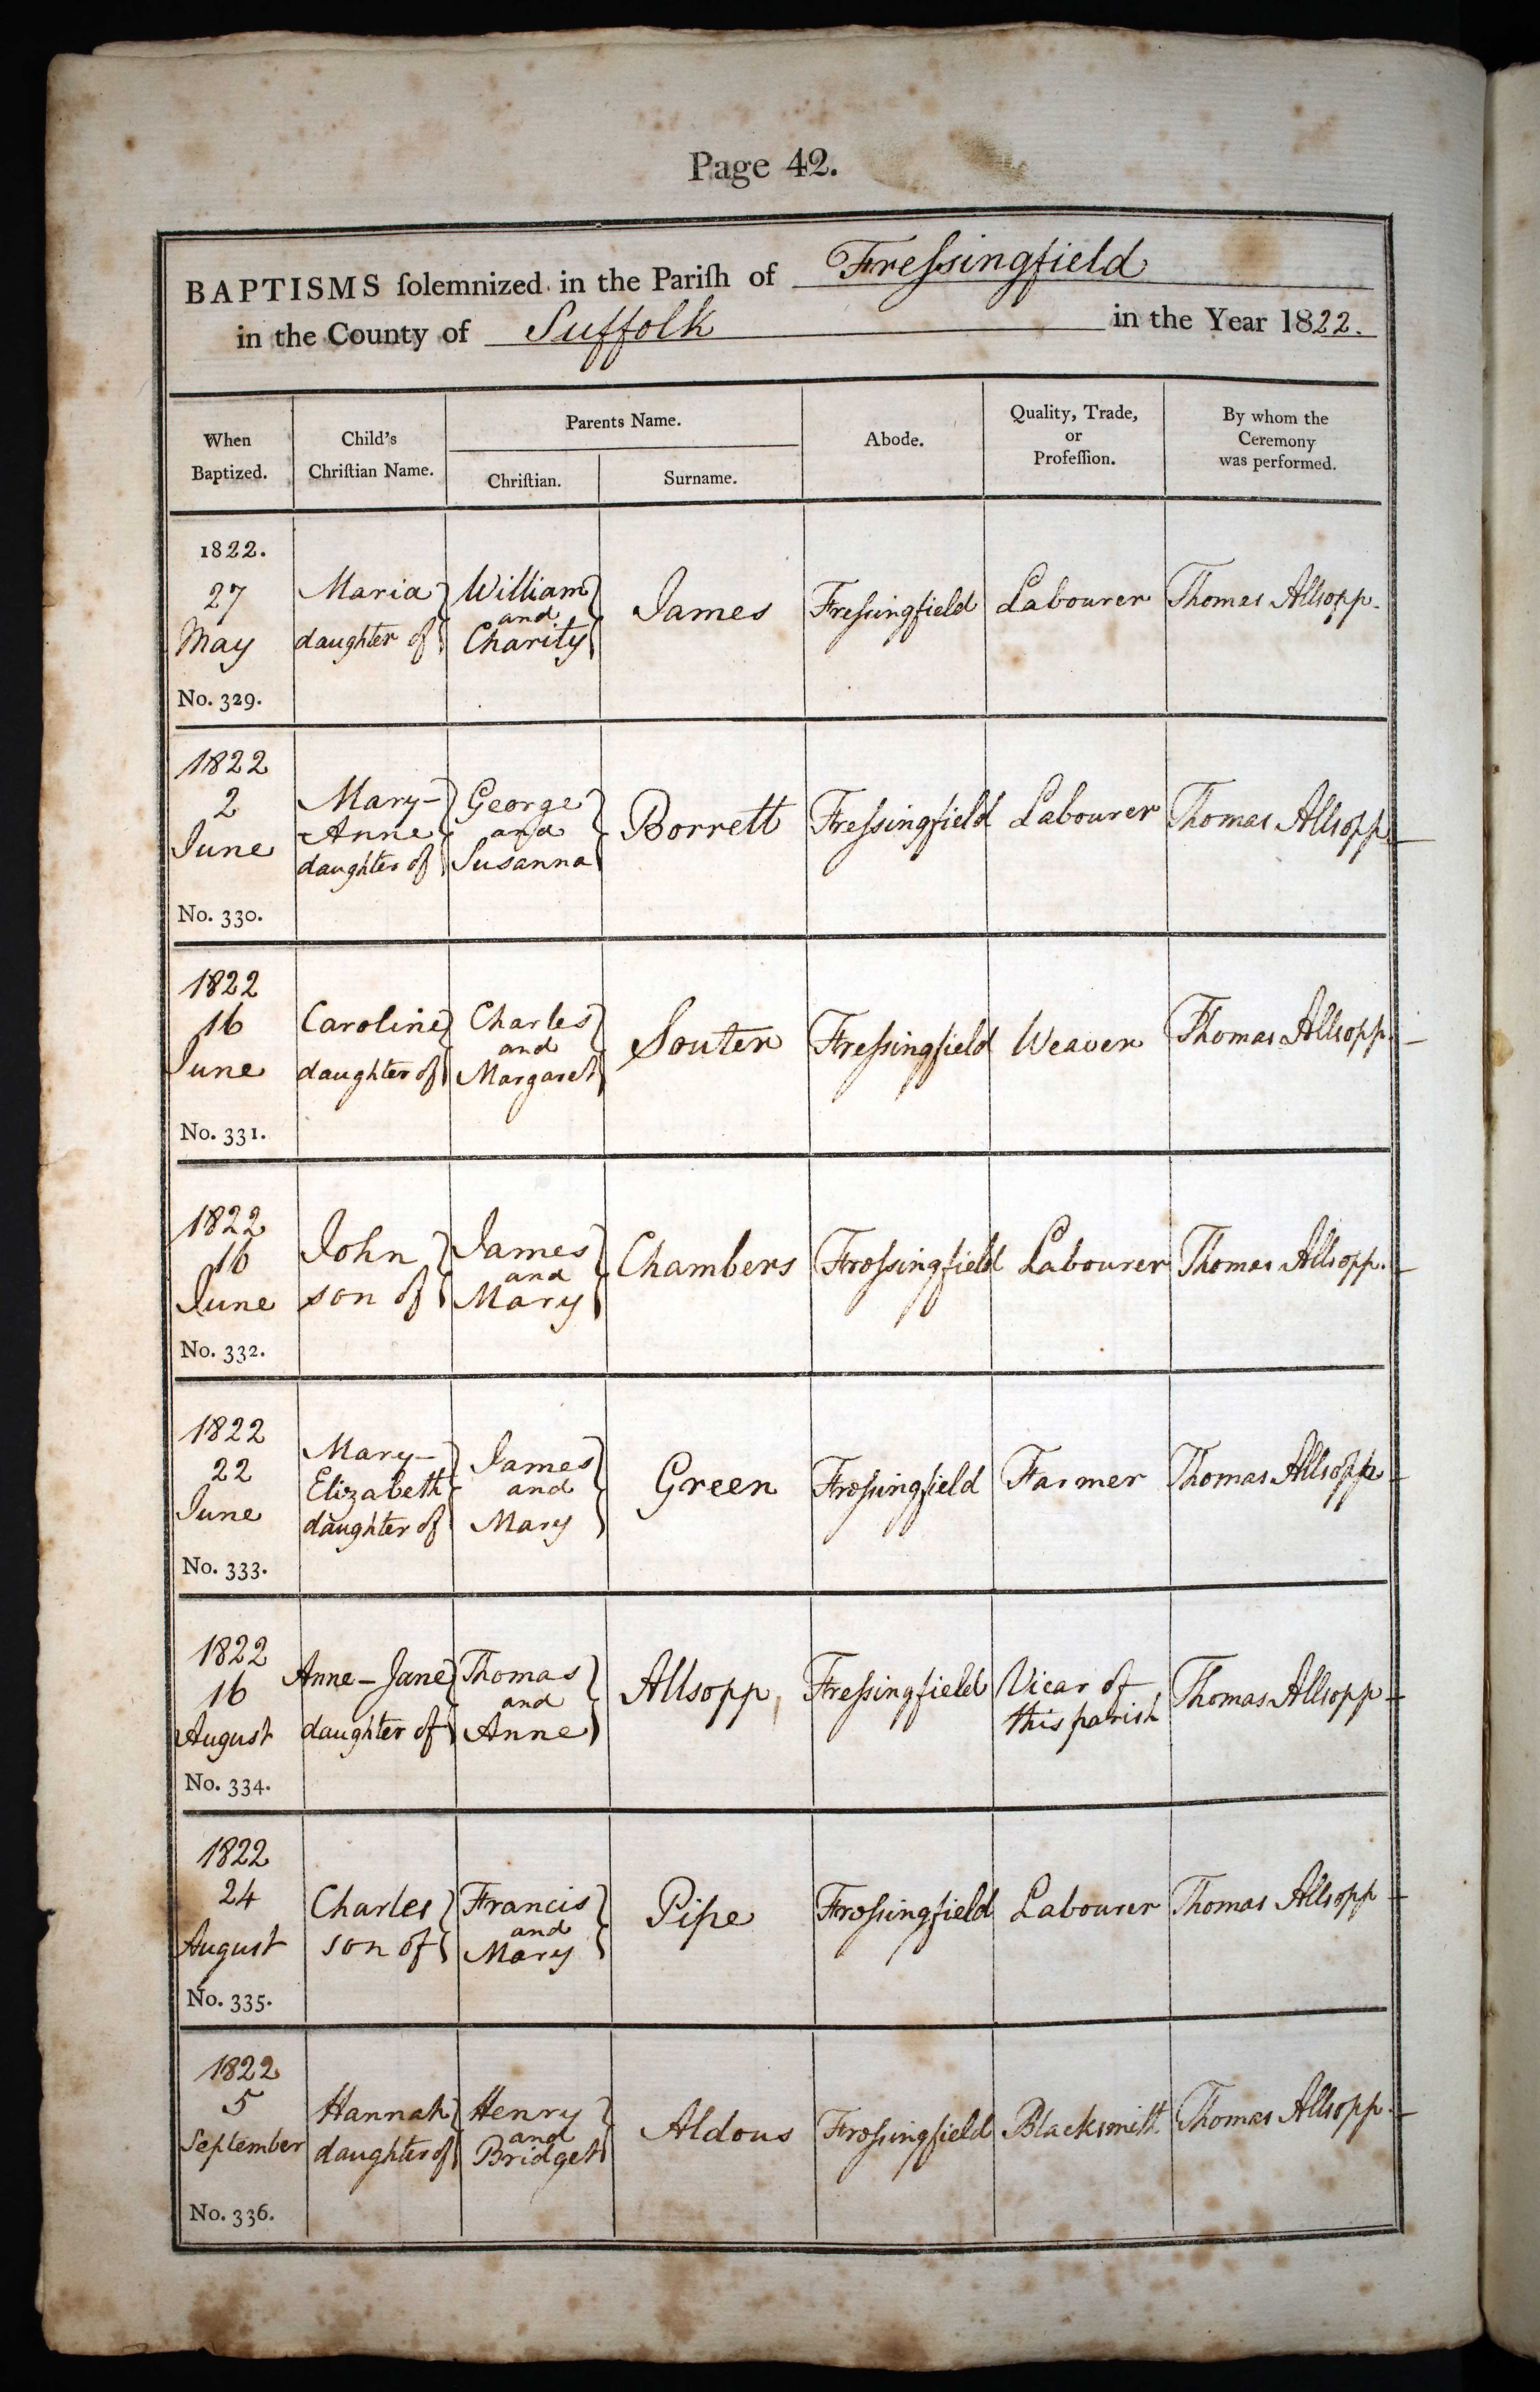 Page 42.
BAPTISMS ſolemnized in the Pariſh of Freſsingfield
in the County of Suffolk in the Year 1822.
When Baptized.
Child's Chriſtian Name.
Parents Name.
Chriſtian.
Surname.
Abode.
Quality, Trade, or Profeſſion.
By whom the Ceremony was performed.
1822.
27
May
No. 329.
Maria
daughter of
William
and
Charity
James
Freſsingfield
Labourer
Thomas Allsopp.
1822
2
June
No. 330.
Mary-
Anne
daughter of
George
and
Susanna
Borrett
Freſsingfield
Labourer
Thomas Allsopp
1822
16
June
No. 331.
Caroline
daughter of
Charles
and
Margaret
Souter
Freſsingfield
Weaver
Thomas Allsopp.
1822
16
June
No. 332.
John
son of
James
and
Mary
Chambers
Freſsingfield
Labourer
Thomas Allsopp.
1822
22
June
No. 333.
Mary-
Elizabeth
daughter of
James
and
Mary
Green
Freſsingfield
Farmer
Thomas Allsopp
1822
16
August
No. 334.
Anne-Jane
daughter of
Thomas
and
Anne
Allsopp
Freſsingfield
Vicar of
this parish
Thomas Allsopp
1822
24
August
No. 335.
Charles
son of
Francis
and
Mary
Pipe
Freſsingfield
Labourer
Thomas Allsopp
1822
5
September
No. 336.
Hannah
daughter of
Henry
and
Bridget
Aldous
Freſsingfield
Blacksmith
Thomas Allsopp